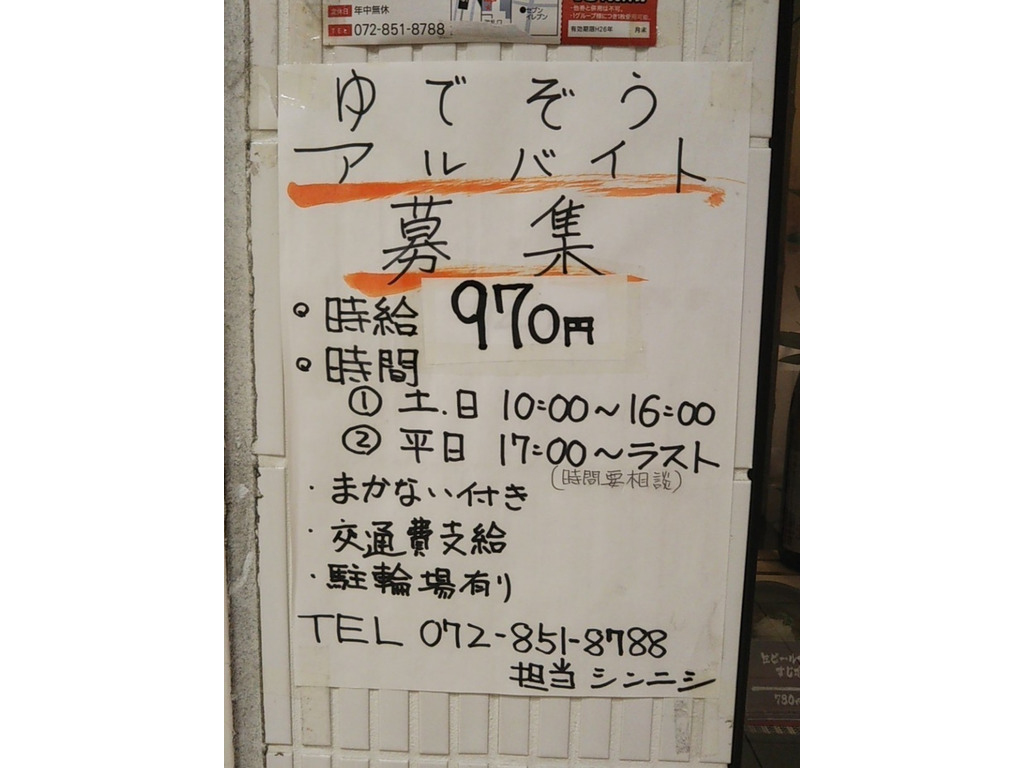 定休日 年中無休
TEL 072-851-8788
セブン
イレブン
有効期限H26年 月末
ゆでぞう
アルバイト
募集
時給 970円
時間
① 土.日 10:00~16:00
② 平日 17:00~ラスト
(時間要相談)
・まかない付き
・交通費支給
・駐輪場有り
TEL 072-851-8788
担当 シンニシ
生ビール
780